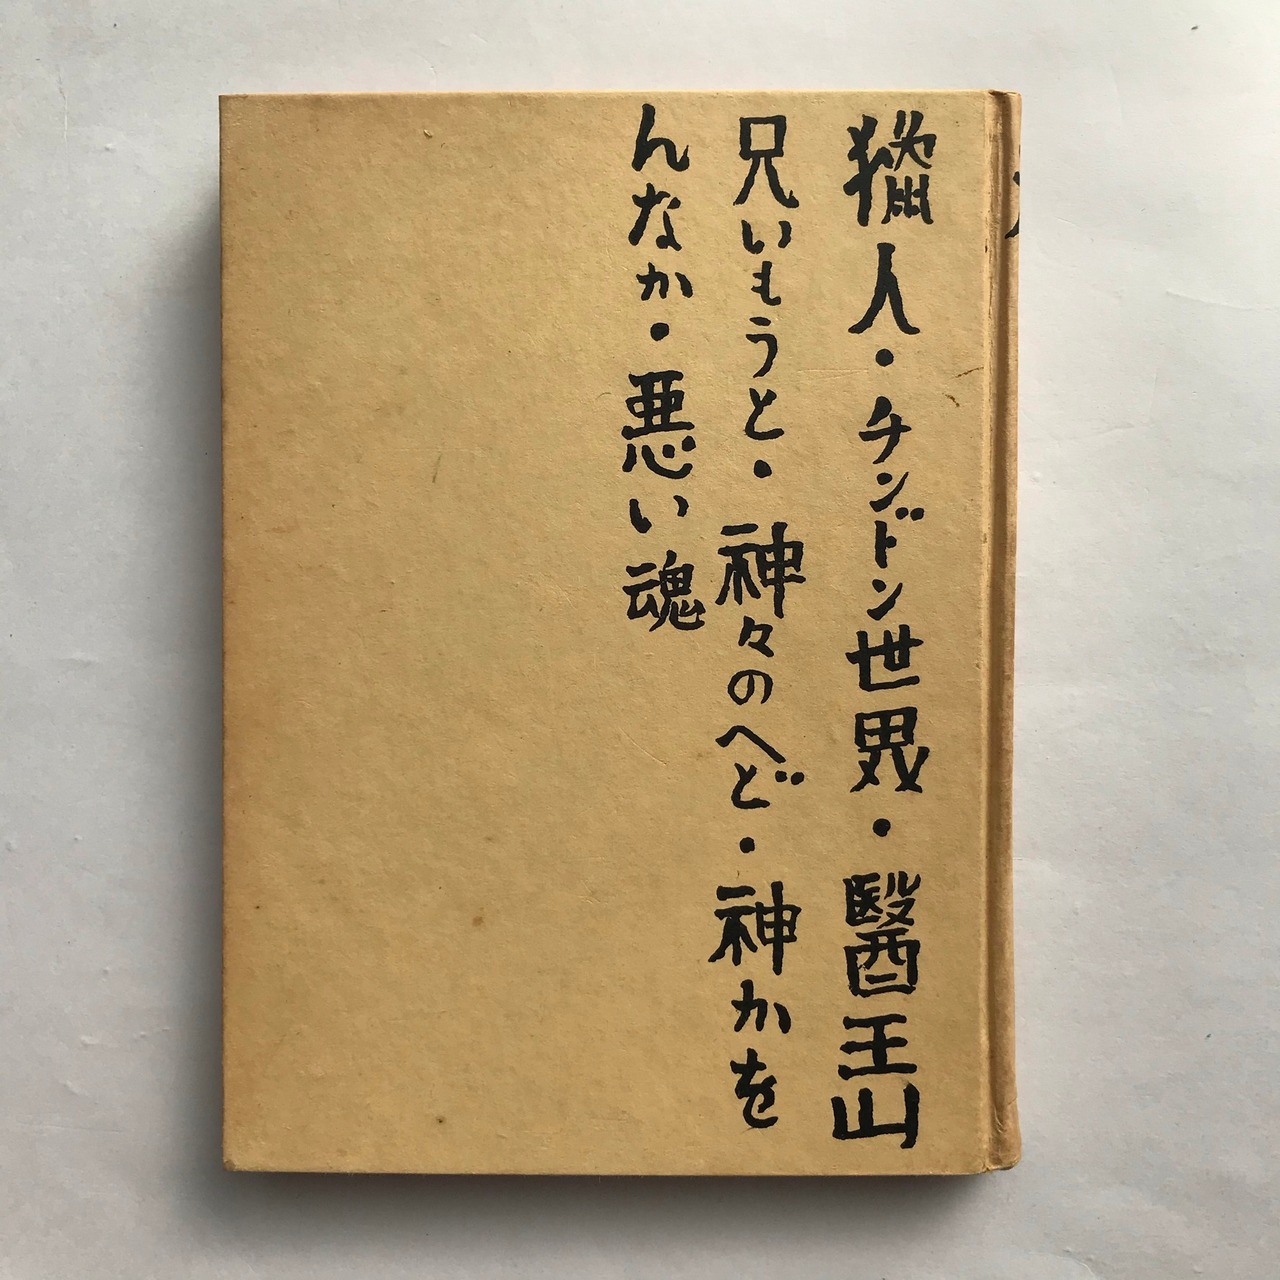 猟人・チンドン世界・醫王山
兄いもうと・神々のへど・神かを
んなか・悪い魂